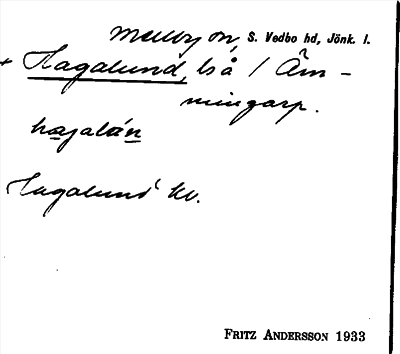 Mellby sn, S. Vedbo hd, Jönk. l.
+ Hagalund, ls å / Äm-
mingarp.
hagalún
Hagalund kv.
FRITZ ANDERSSON 1933